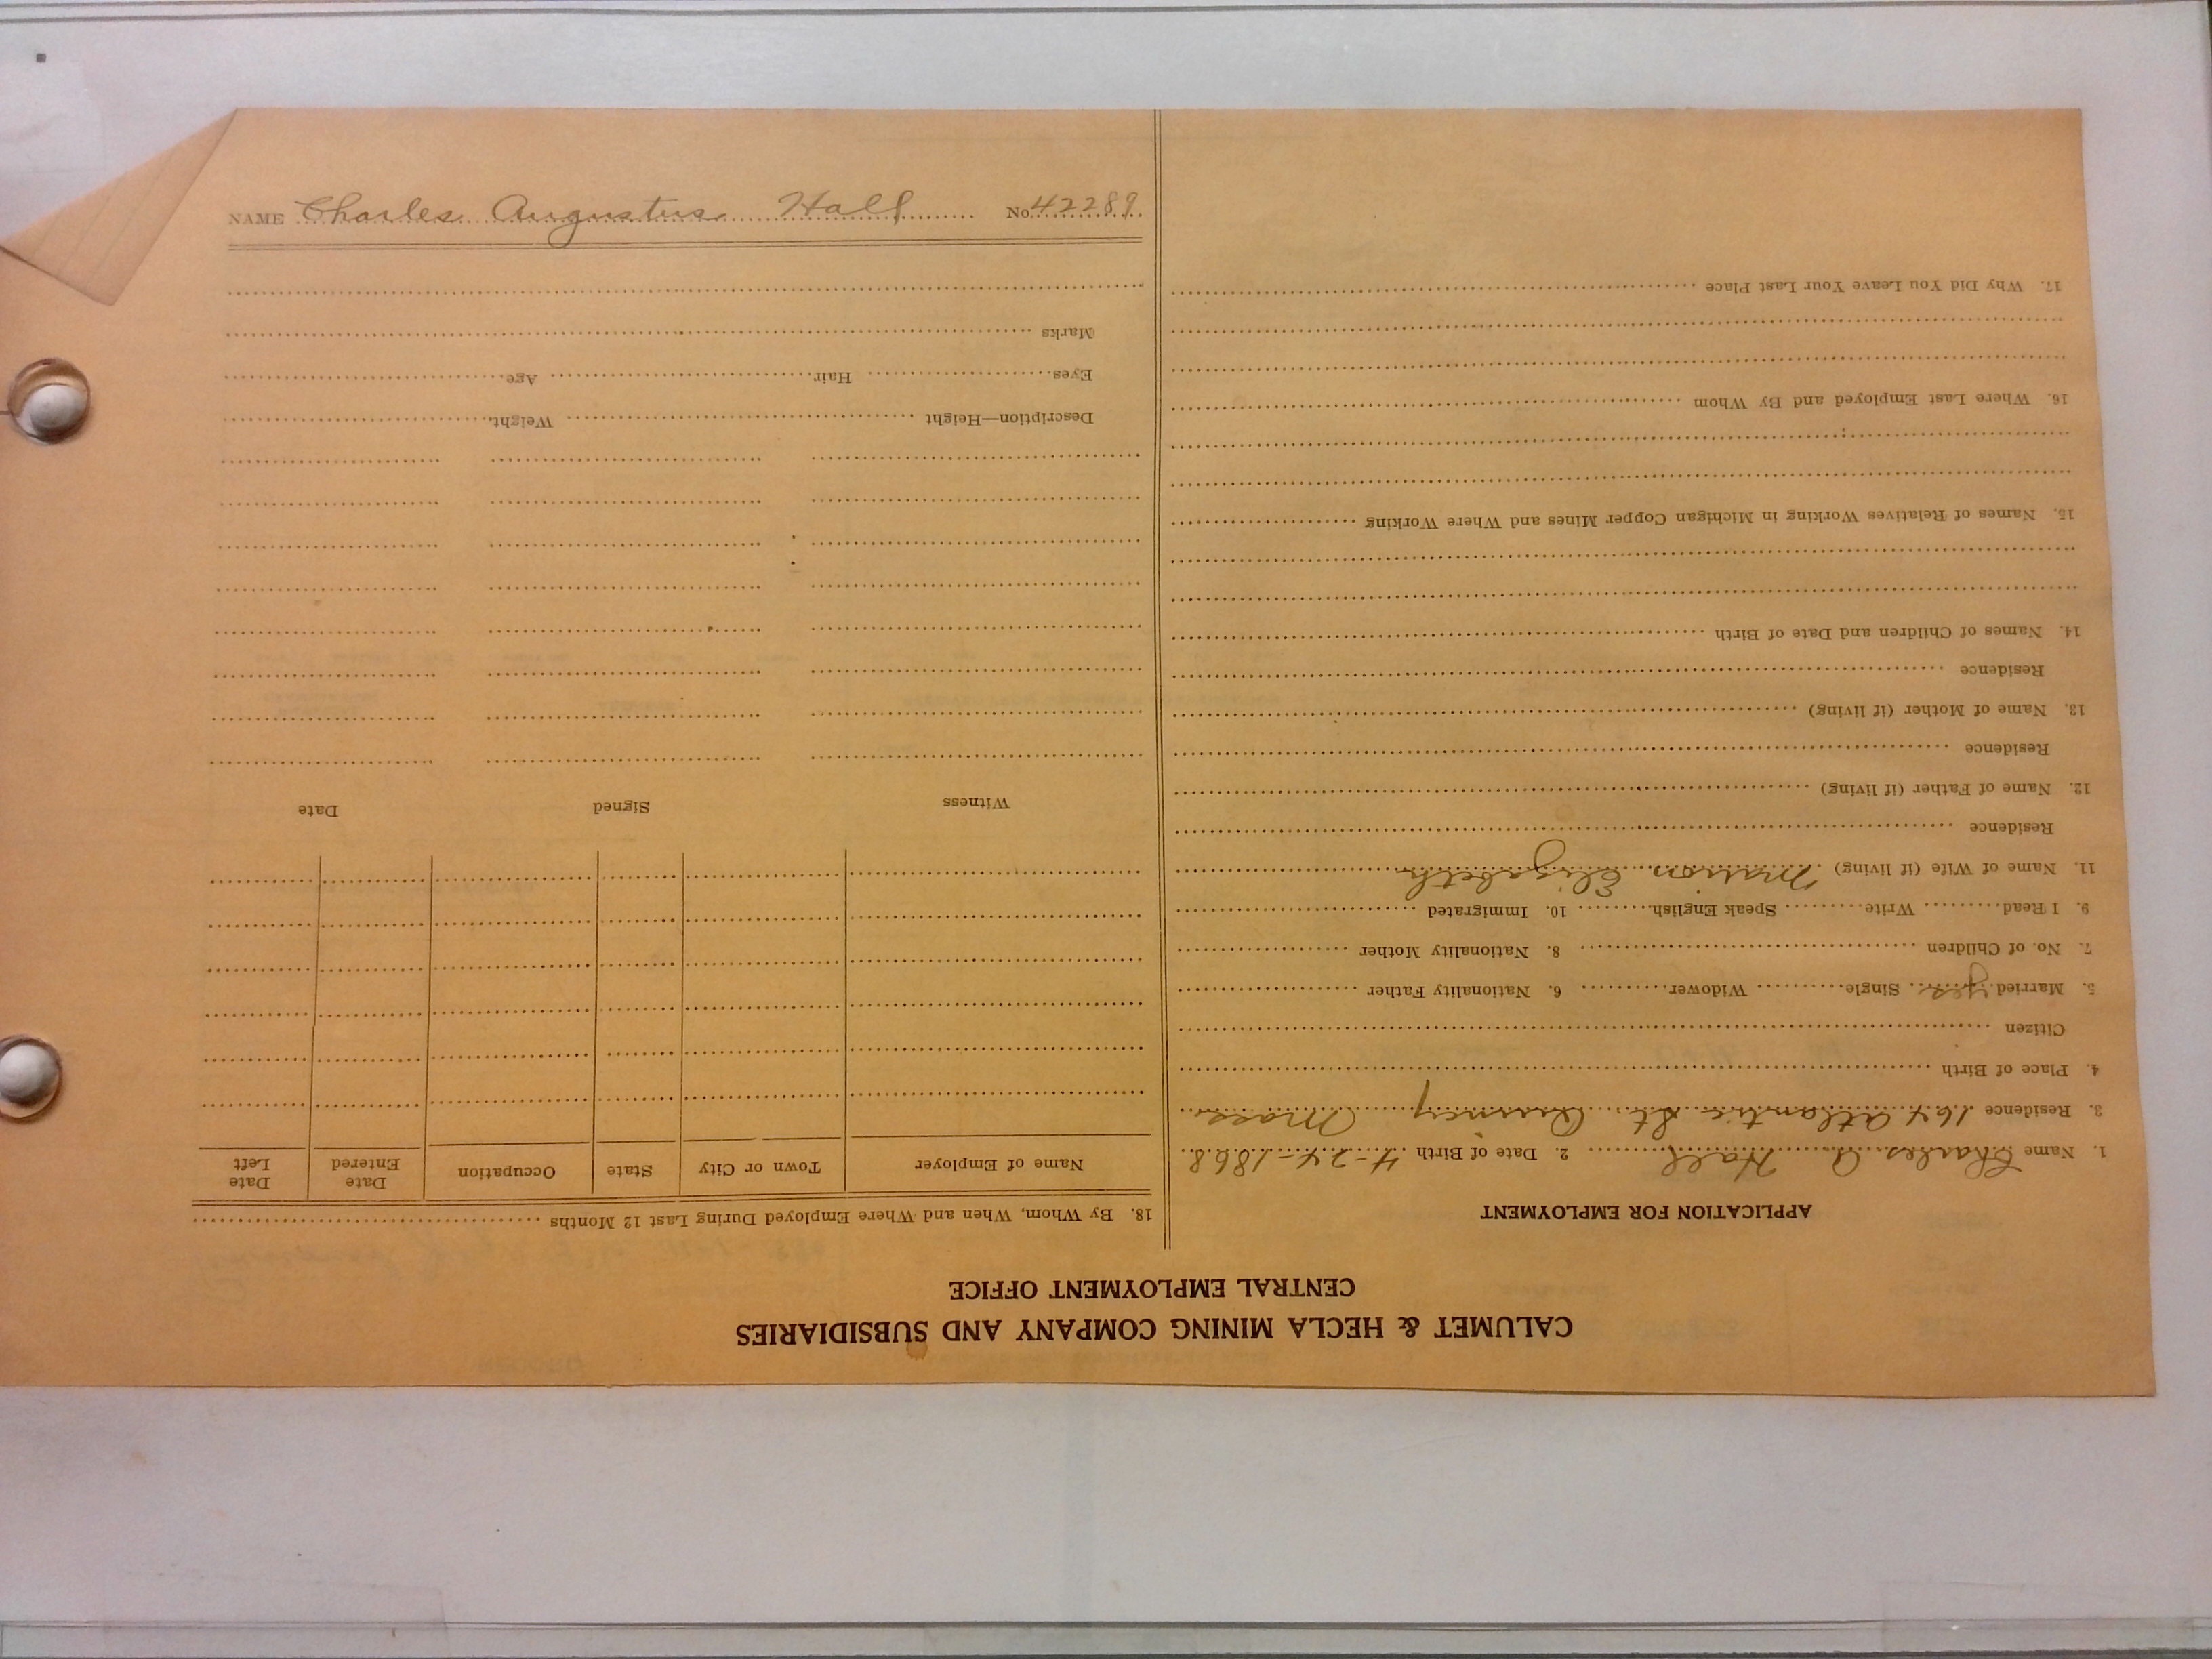 CALUMET & HECLA MINING COMPANY AND SUBSIDIARIES
CENTRAL EMPLOYMENT OFFICE
APPLICATION FOR EMPLOYMENT
1. Name Charles A Hall 2. Date of Birth 4-24-1868
3. Residence 164 Atlantic St. Quincy Mass
4. Place of Birth
Citizen
5. Married yes Single Widower 6. Nationality Father
7. No. of Children 8. Nationality Mother
9. I Read Write Speak English 10. Immigrated
11. Name of Wife (if living) Marion Elizabeth
Residence
12. Name of Father (if living)
Residence
13. Name of Mother (if living)
Residence
14. Names of Children and Date of Birth
15. Names of Relatives Working in Michigan Copper Mines and Where Working
16. Where Last Employed and By Whom
17. Why Did You Leave Your Last Place
18. By Whom, When and Where Employed During Last 12 Months
Name of Employer Town or City State Occupation Date Entered Date Left
Witness Signed Date
Description—Height Weight
Eyes Hair Age
Marks
NAME Charles Augustus Hall No. 42289